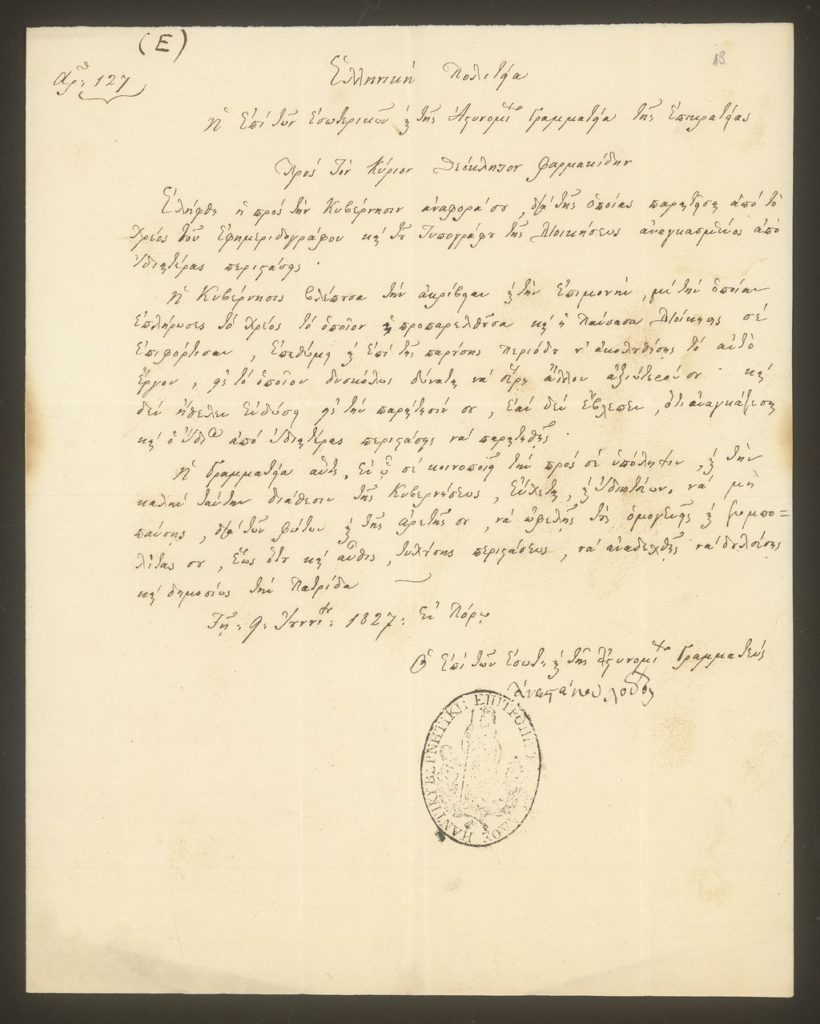 (Ε)
13
Ἀρ: 127
Ἑλληνικὴ Πολιτεία
Ἡ Ἐπὶ τῶν Ἐσωτερικῶν καὶ τῆς Ἀστυνομί Γραμματεία τῆς Ἐπικρατείας
Πρὸς τὸν Κύριον Θεόκλητον Φαρμακίδην
Ἐλήφθη ἡ πρὸς τὴν Κυβέρνησιν ἀναφορά σου, διὰ τῆς ὁποίας παραιτῆσαι ἀπὸ τὸ
χρέος τοῦ Ἐφημεριδογράφου καὶ τοῦ Τυπογράφου τῆς Διοικήσεως ἀναγκασμένος ἀπὸ
ἰδιαιτέρας περιστάσεις.
Ἡ Κυβέρνησις βλέπουσα τὴν ἀκρίβειαν καὶ τὴν ἐπιμονὴν, μὲ τὴν ὁποίαν
ἐπλήρωσες τὸ χρέος τὸ ὁποῖον ἡ προπαρελθοῦσα καὶ ἡ παύσασα Διοίκησις σὲ
ἐπιφόρτισαν, ἐπεθύμει καὶ ἐπὶ τῆς παρούσης περιόδου ν' ἀκολουθήσῃς τὸ αὐτὸ
ἔργον, εἰς τὸ ὁποῖον δυσκόλως δύναται νὰ εὕρῃ ἄλλον ἀξιώτερόν σου· καὶ
δὲν ἤθελεν ἐνδώσῃ εἰς τὴν παραίτησίν σου, ἐὰν δὲν ἔβλεπεν, ὅτι ἀναγκάζεσαι
καὶ ὁ ἴδιος ἀπὸ ἰδιαιτέρας περιστάσεις νὰ παραιτηθῇς.
Ἡ Γραμματεία αὕτη, ἐν ᾧ σὲ κοινοποιεῖ τὴν πρὸς σὲ ὑπόληψιν, καὶ τὴν
καλὴν ταύτην διάθεσιν τῆς Κυβερνήσεως, εὔχεται, καὶ ἰδιωτεύων, νὰ μὴ
παύσῃς, διὰ τῶν φώτων καὶ τῆς ἀρετῆς σου, νὰ ὠφελῇς τοὺς ὁμογενεῖς καὶ συμπο=
λίτας σου, ἕως ὅτου καὶ αὖθις, τυχούσης περιστάσεως, νὰ ἀναδεχθῇς νὰ δουλεύσῃς
καὶ δημοσίως τὴν Πατρίδα
Τῇ: 9: Ἰουνί: 1827: Ἐν Πόρῳ
Ὁ Ἐπὶ τῶν Ἐσωτ: καὶ τῆς Ἀστυνομί Γραμματεὺς
Η ΑΝΤΙΚΥΒΕΡΝΗΤΙΚΗ ΕΠΙΤΡΟΠΗ